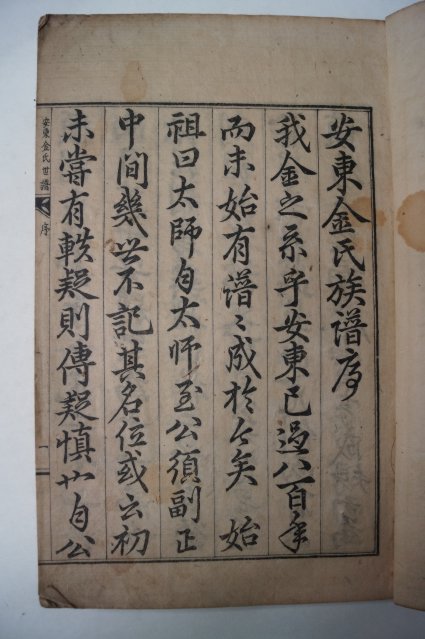 安東金氏族譜序
我金之系乎安東已過八百年
而未始有譜〻成於今矣 始
祖曰太師自太師至公須副正
中间幾世不記其名位或云初
未嘗有軼疑則傳疑慎也自公
安東金氏世譜
序
一